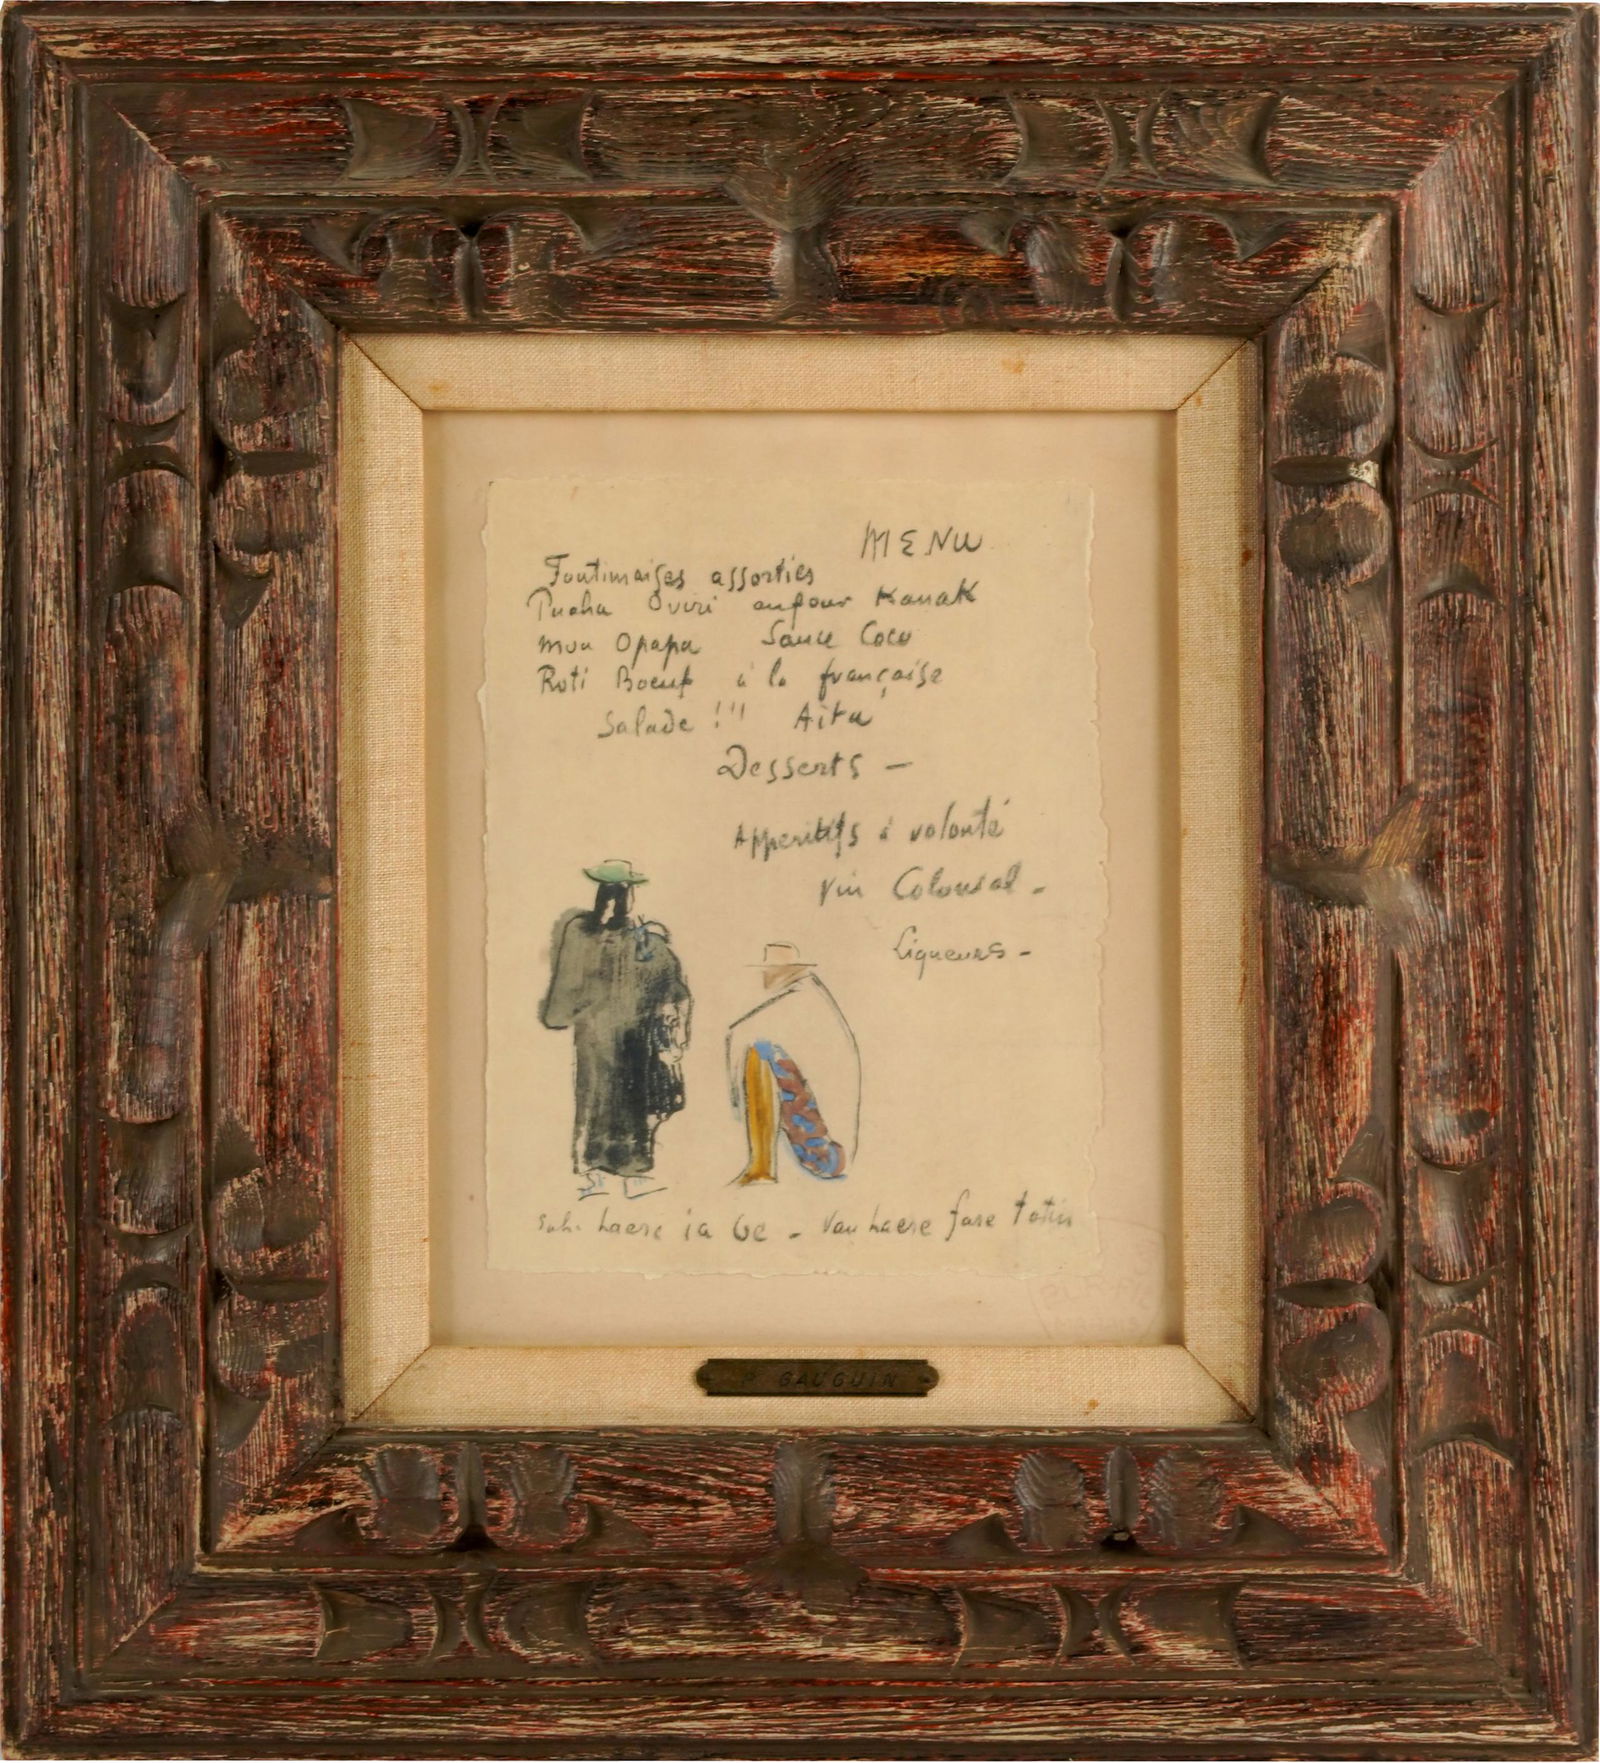 MENU
assorties
Puaha Oviri aufour Kanak
Moa Opapa Sauce Coco
Roti Boeuf à la française
Salade !!! Aita
Desserts –
Apperitifs à volonté
Vin Colonial –
Liqueurs –
haere ia oe – Vau haere fare
P. GAUGUIN